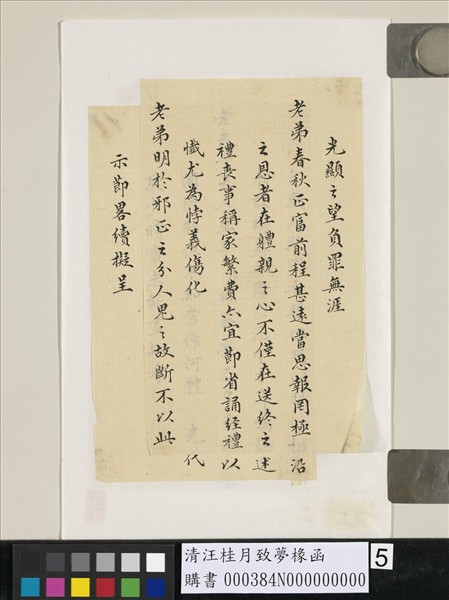 光顯之望負罪無涯
老弟春秋正富前程甚遠當思報罔極 沿
之恩者在體親之心不僅在送終之 述
禮喪事稱家繁費亦宜節省誦經禮 以
懺尤為悖義傷化 代
老弟明於邪正之分人鬼之故斷不以此
示節畧續擬呈
清汪桂月致夢椽函
購書 000384N000000000
5